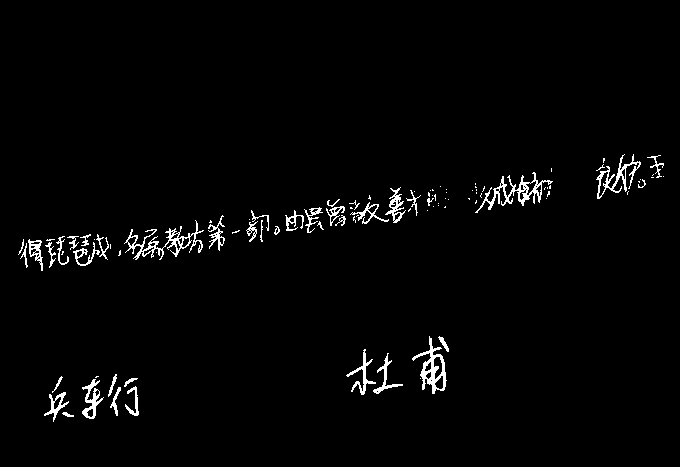 得琵琶成,名属教坊第一部。曲罢曾教善才服 妆成每被 良妒。五
兵车行 杜甫